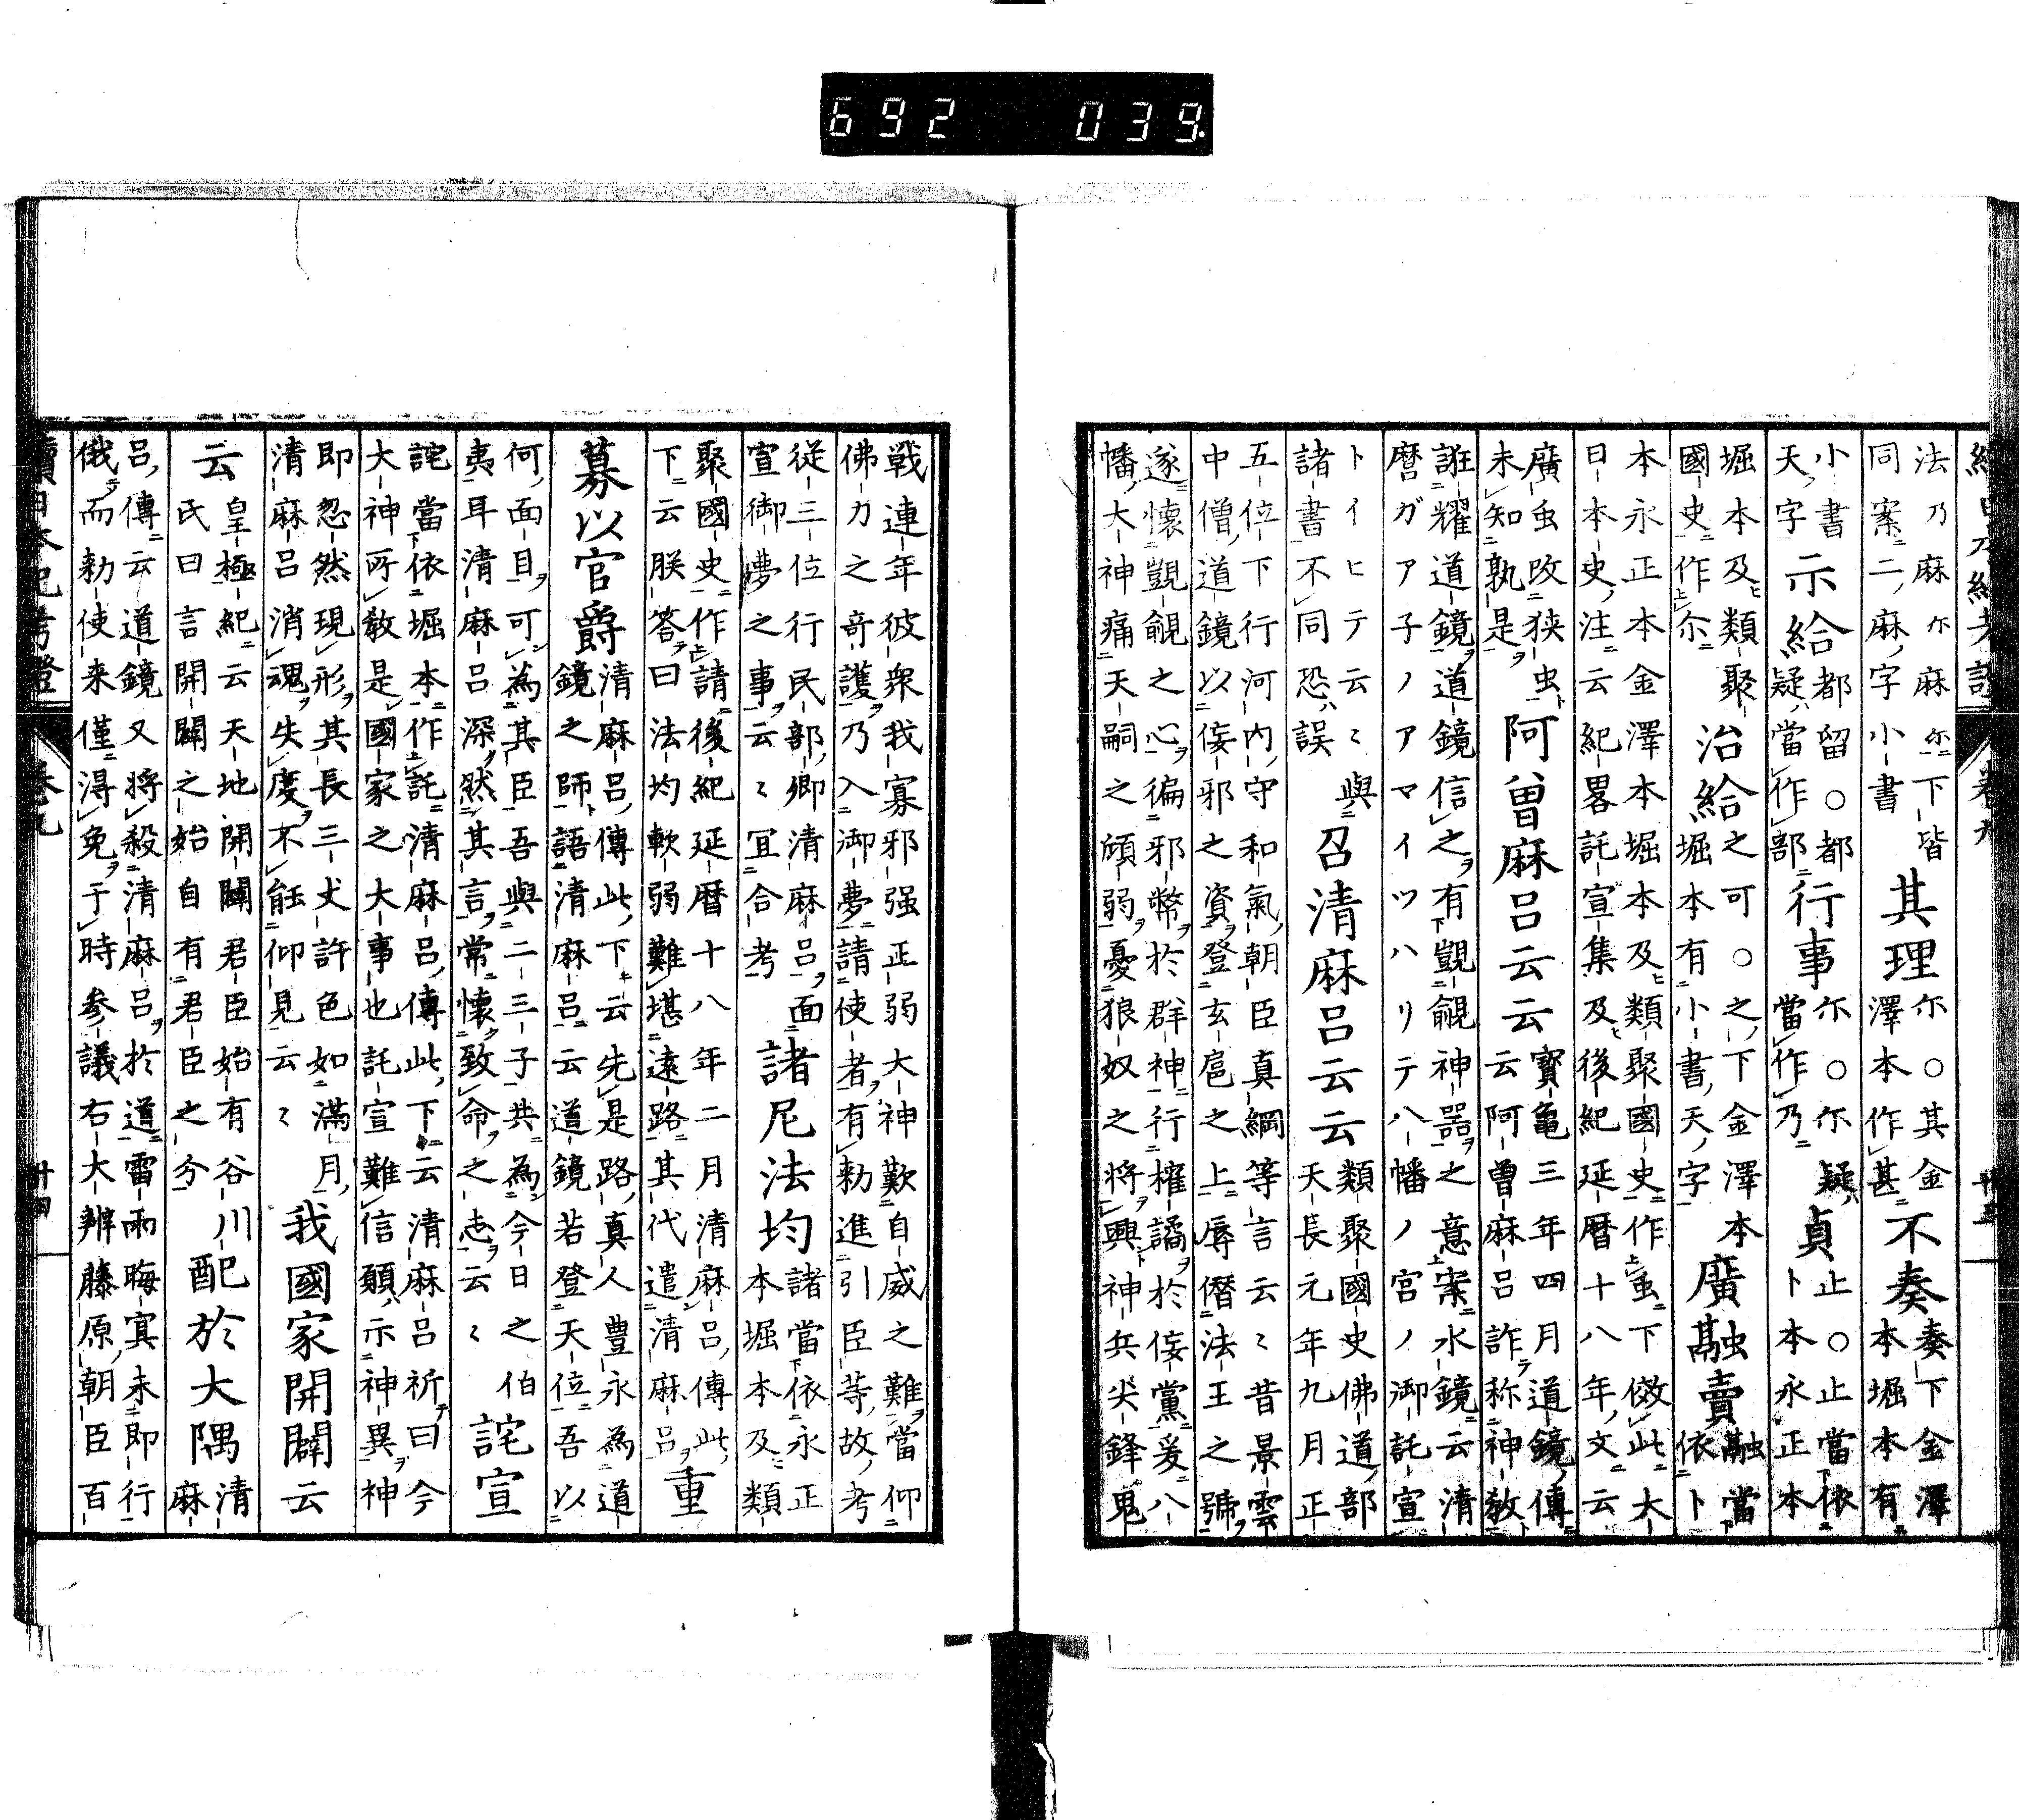 續日本紀考證 卷九 廿三
法乃麻尓麻尓下皆
同案二麻字小書
其理
尓〇其金
澤本作甚
不奏
奏下金澤
本堀本有
小書
天字
示給
都留〇都
疑當作部
行事
尓〇尓疑
當作乃
貞
止〇止當依
卜本永正本
堀本及類聚
國史作尓
治給
之可〇之下金澤本
堀本有小書天字
廣融賣
融當
依卜
本永正本金澤本堀本及類聚國史作虫下傚此大
日本史注云紀畧託宣集及後紀延暦十八年文云
廣虫改狭虫
未知孰是
阿曾麻呂云云
寳龜三年四月道鏡傳
云阿曾麻呂詐称神敎
誑耀道鏡道鏡信之有覬覦神噐之意案水鏡云清
麿ガア子ノアマイツハリテ八幡ノ宮ノ御託宣
トイヒテ云〻與
諸書不同恐誤
召清麻呂云云
類聚國史佛道部
天長元年九月正
五位下行河内守和氣朝臣真綱等言云〻昔景雲
中僧道鏡以佞邪之資登玄扈之上辱僭法王之號
遂懷覬覦之心徧邪幣於群神行權譎於佞黨爰八
幡大神痛天嗣之傾弱憂狼奴之将興神兵尖鋒鬼
戰連年彼衆我寡邪强正弱大神歎自威之難當仰
佛力之奇護乃入御夢請使者有勅進引臣等故考
從三位行民部卿清麻呂面
宣御夢之事云〻冝合考
諸尼法均
諸當依永正
本堀本及類
聚國史作請後紀延暦十八年二月清麻呂傳此
下云朕答曰法均軟弱難堪遠路其代遣清麻呂
重
募以官爵
清麻呂傳此下云先是路真人豊永為道
鏡之師語清麻呂云道鏡若登天位吾以
何面目可為其臣吾與二三子共為今日之伯
夷耳清麻呂深然其言常懷致命之志云〻
詫宣
詫當依堀本作託清麻呂傳此下云清麻呂祈曰今
大神所敎是國家之大事也託宣難信願示神異神
即忽然現形其長三丈許色如滿月
清麻呂消魂失度不能仰見云〻
我國家開闢云
云
皇極紀云天地開闢君臣始有谷川
氏曰言開闢之始自有君臣之分
配於大隅
清
麻
呂傳云道鏡又将殺清麻呂於道雷雨晦冥未即行
俄而勅使来僅得免于時参議右大辨藤原朝臣百
續日本紀考證 卷九 廿四
692 039.